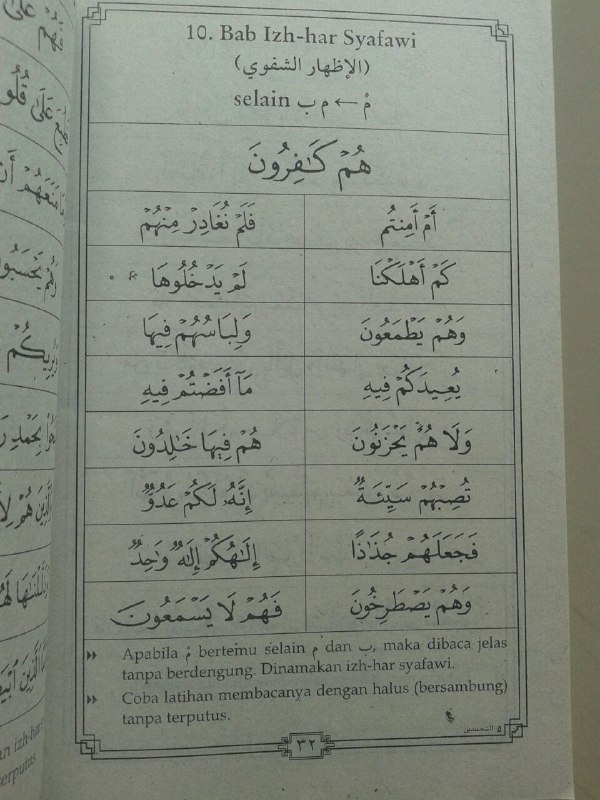 10. Bab Izh-har Syafawi
(الإظهار الشفوي)
مْ ← م ب selain
هُمْ كَٰفِرُونَ
أَمْ أَمِنتُم
فَلَمْ نُغَادِرْ مِنْهُمْ
كَمْ أَهْلَكْنَا
لَمْ يَدْخُلُوهَا
وَهُمْ يَطْمَعُونَ
وَلِبَاسُهُمْ فِيهَا
يُعِيدَكُمْ فِيهِ
مَآ أَفَضْتُمْ فِيهِ
وَلَا هُمْ يَحْزَنُونَ
هُمْ فِيهَا خَٰلِدُونَ
تُصِبْهُمْ سَيِّئَةٌ
إِنَّهُۥ لَكُمْ عَدُوٌّ
فَجَعَلَهُمْ جُذَٰذًا
إِلَٰهُكُمْ إِلَٰهٌ وَٰحِدٌ
وَهُمْ يَصْطَرِخُونَ
فَهُمْ لَا يَسْمَعُونَ
Apabila مْ bertemu selain م dan ب, maka dibaca jelas
tanpa berdengung. Dinamakan izh-har syafawi.
Coba latihan membacanya dengan halus (bersambung)
tanpa terputus.
٣٢